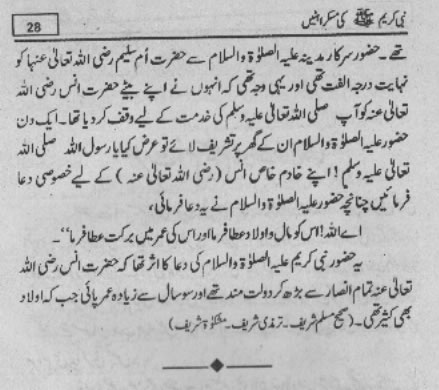 28
نبی کریم ﷺ کی مسکراہٹیں
تھے۔ حضور سرکار مدینہ علیہ الصلوٰۃ والسلام سے حضرت اُم سلیم رضی اللہ تعالیٰ عنہا کو
نہایت درجہ الفت تھی اور یہی وجہ تھی کہ انہوں نے اپنے بیٹے حضرت انس رضی اللہ
تعالیٰ عنہ کو آپ صلی اللہ تعالیٰ علیہ وسلم کی خدمت کے لیے وقف کر دیا تھا۔ ایک دن
حضور علیہ الصلوٰۃ والسلام ان کے گھر پر تشریف لائے تو عرض کیا یا رسول اللہ صلی اللہ
تعالیٰ علیہ وسلم! اپنے خادم خاص انس (رضی اللہ تعالیٰ عنہ) کے لیے خصوصی دعا
فرمائیں چنانچہ حضور علیہ الصلوٰۃ والسلام نے یہ دعا فرمائی،
اے اللہ! اس کو مال و اولاد عطا فرما اور اس کی عمر میں برکت عطا فرما‘‘۔
یہ حضور نبی کریم علیہ الصلوٰۃ والسلام کی دعا کا اثر تھا کہ حضرت انس رضی اللہ
تعالیٰ عنہ تمام انصار سے بڑھ کر دولت مند تھے اور سو سال سے زیادہ عمر پائی جب کہ اولاد
بھی کثیر تھی۔ (صحیح مسلم شریف۔ ترمذی شریف۔ مشکوٰۃ شریف)